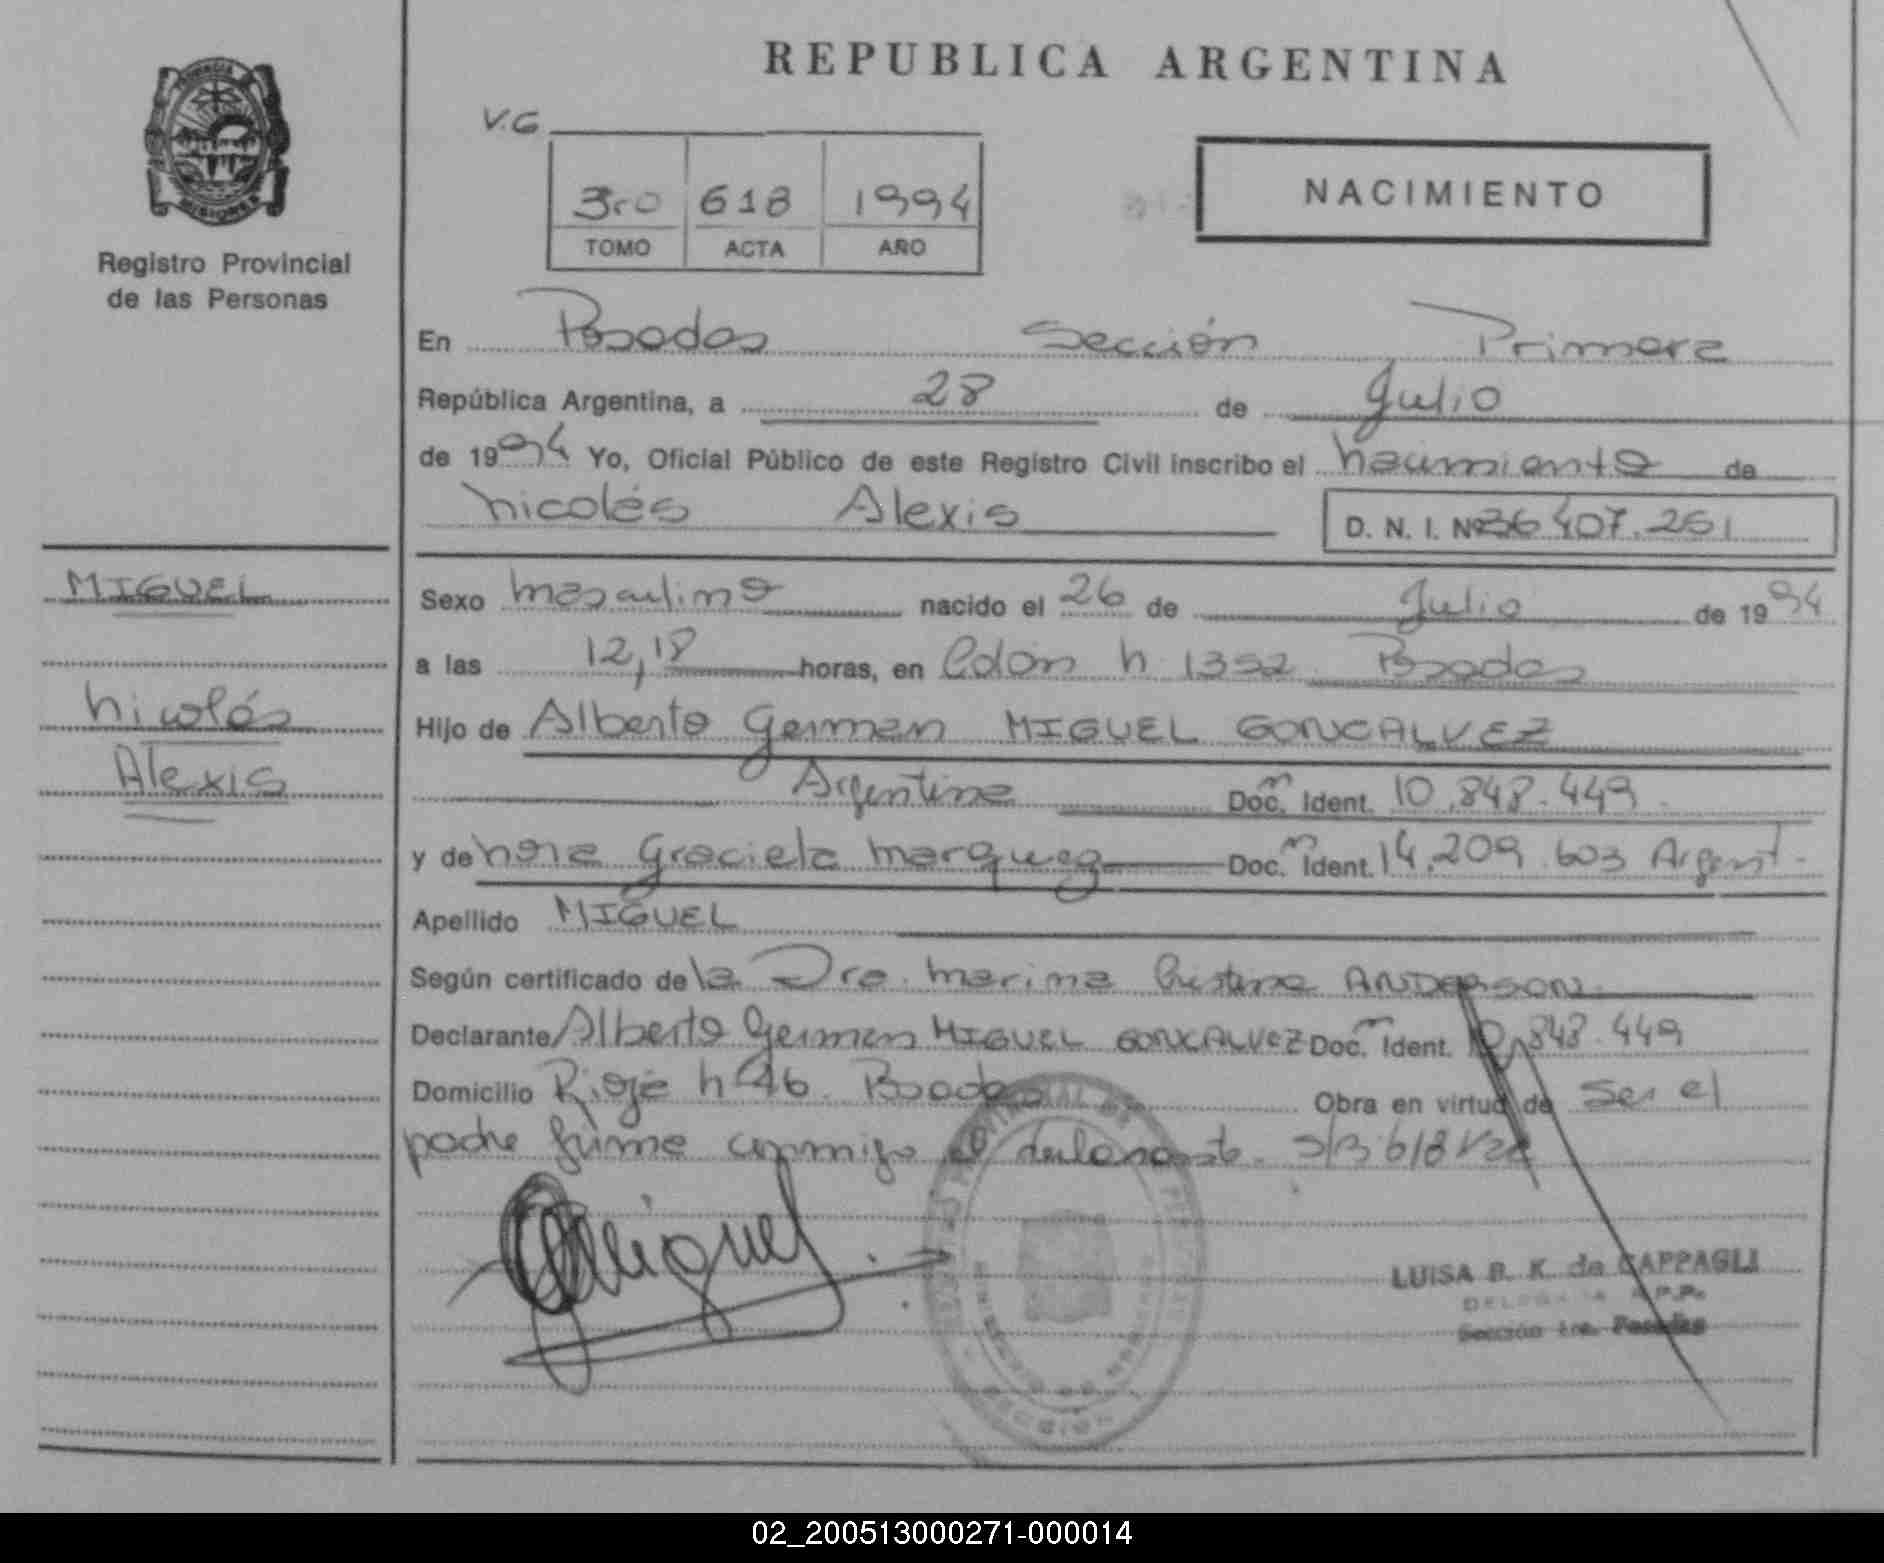 REPUBLICA ARGENTINA
V.G
3ro 618 1994
TOMO ACTA AÑO
NACIMIENTO
MISIONES
Registro Provincial
de las Personas
En Posadas Sección Primera
República Argentina, a 28 de Julio
de 1994 Yo, Oficial Público de este Registro Civil inscribo el nacimiento de
Nicolás Alexis D. N. I. Nº 36 407.251
MIGUEL
Nicolás
Alexis
Sexo masculino nacido el 26 de Julio de 1994
a las 12,18 horas, en Colón n 1352 Posadas
Hijo de Alberto German MIGUEL GONCALVEZ
Argentina Doc. Ident. 10.848.449.
y de Nora Graciela Marquez Doc. Ident. 14.209.603 Argent.
Apellido MIGUEL
Según certificado de la Dra. Marina Cristina ANDERSON
Declarante Alberto German MIGUEL GONCALVEZ Doc. Ident. 10.848.449
Domicilio Rioja n 46. Posadas Obra en virtud de ser el
padre firma conmigo el declarante.
Miguel
LUISA B. K. de CAPPAGLI
DELEGADA R.P.P.
Sección 1ra. Posadas
02_200513000271-000014